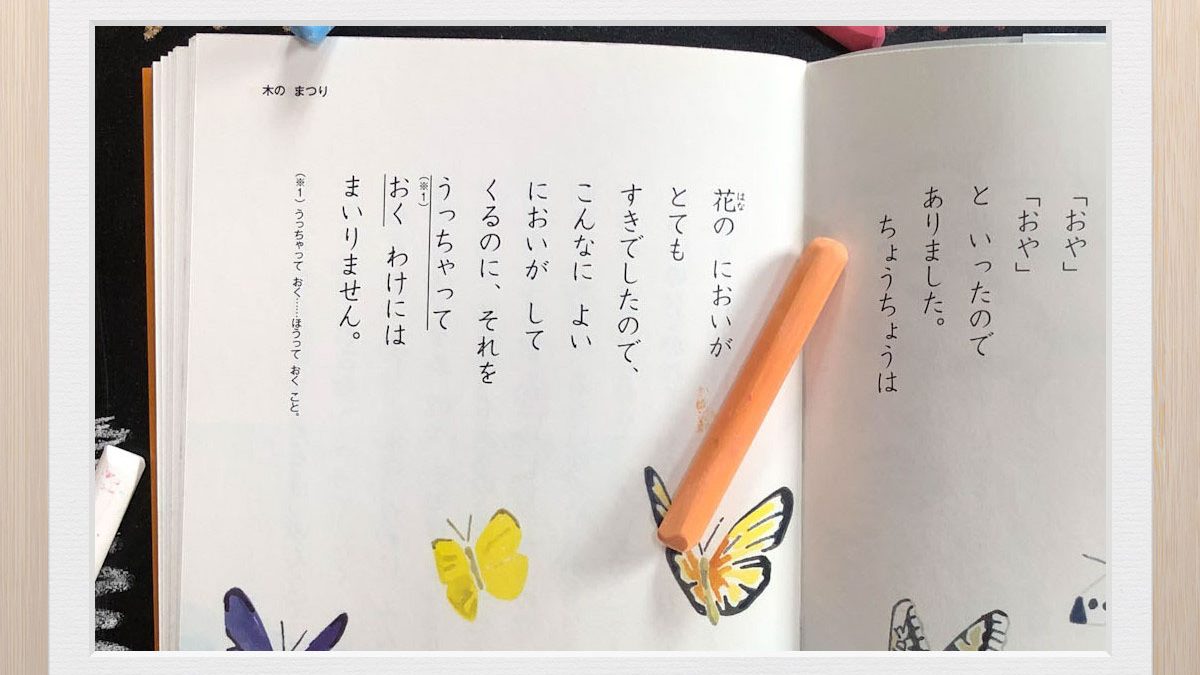 「おや」
「おや」
と いったので
ありました。
ちょうちょうは
木の まつり
花の においが
はな
とても
すきでしたので、
こんなに よい
においが して
くるのに、それを
うっちゃって
(※1)
おく わけには
まいりません。
(※1) うっちゃって おく……ほうって おく こと。